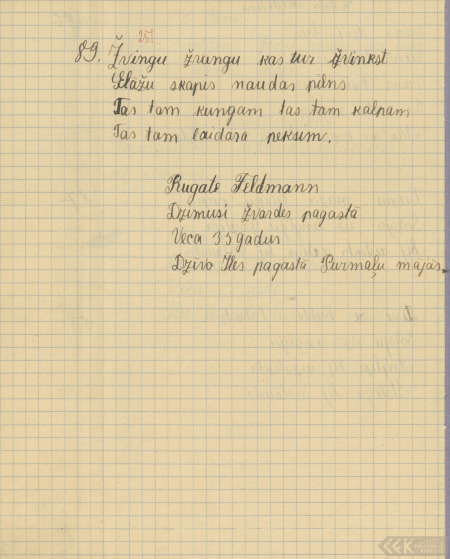 251
89. Žvingu žvangu kas tur žvinkst
Glažu skapis naudas pilns
Tas tam kungam tas tam kalpam
Tas tam laidara peksim.
Rugate Feldmann
Dzimusi Žvardes pagastā
Veca 35 gadus
Dzīvo Iles pagastā Purmaļu mājās.